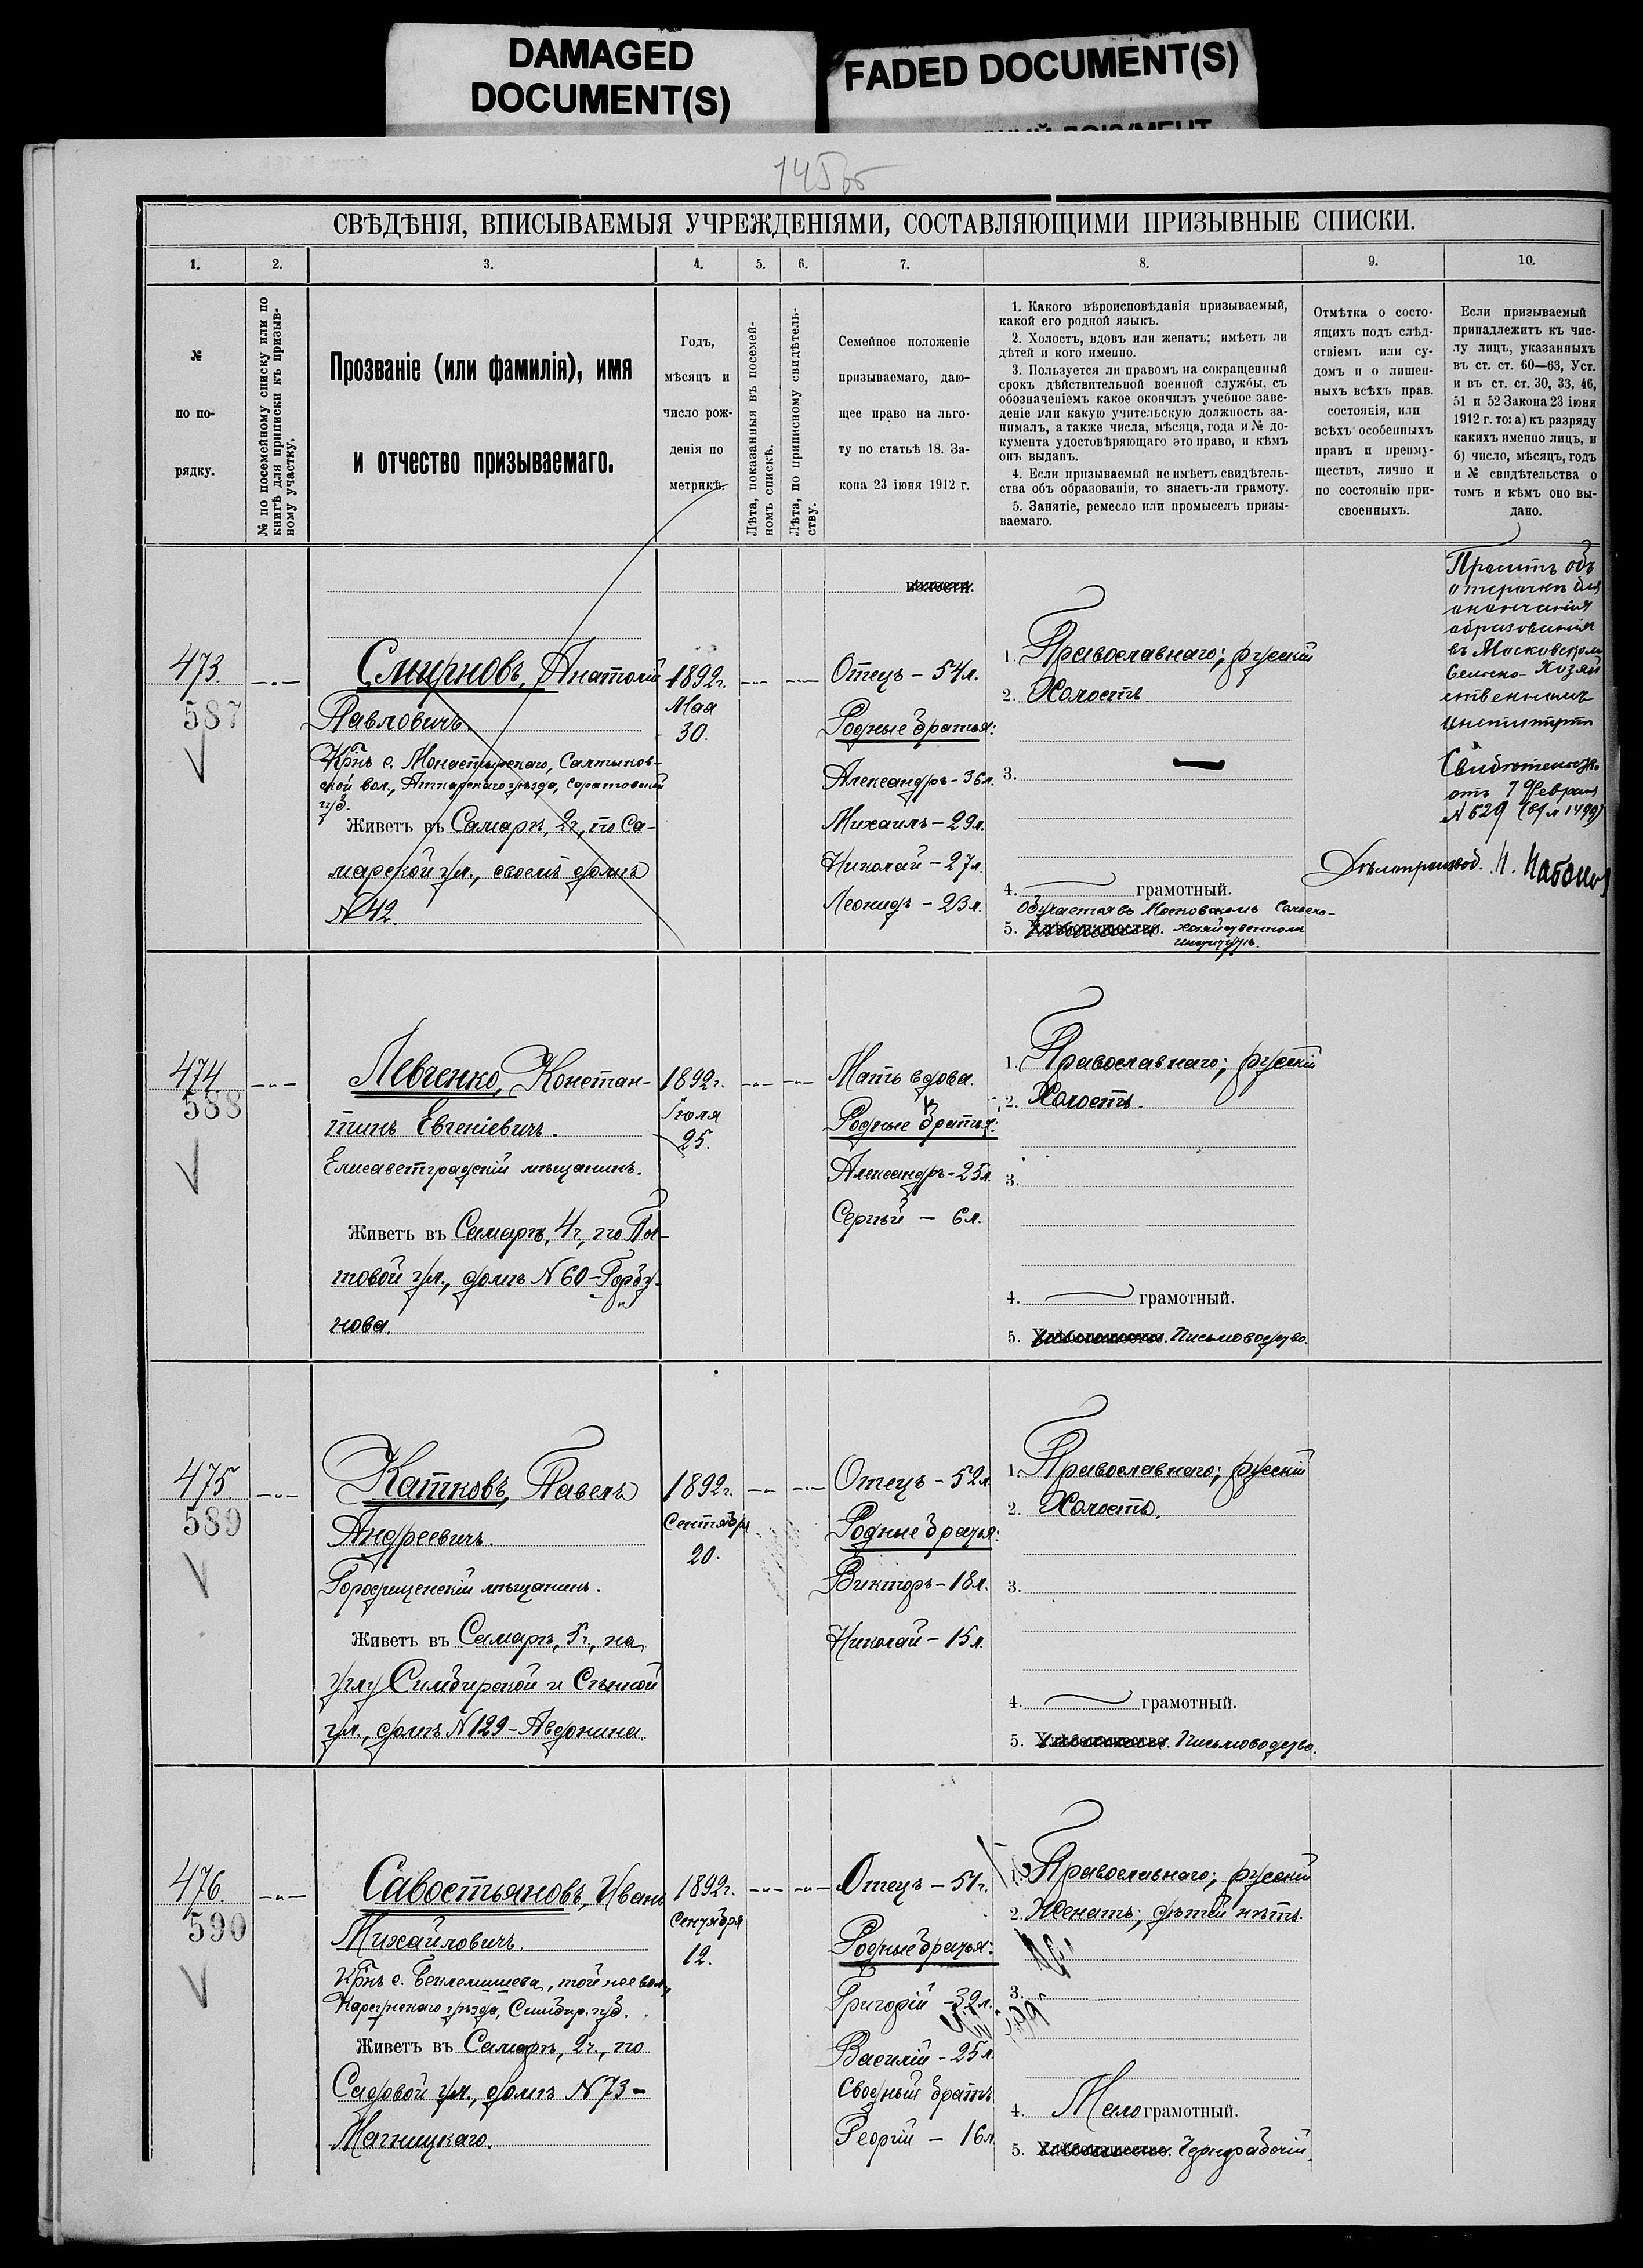 DAMAGED
DOCUMENT(S)
FADED DOCUMENT(S)
145об
СВѢДѢНІЯ, ВПИСЫВАЕМЫЯ УЧРЕЖДЕНІЯМИ, СОСТАВЛЯЮЩИМИ ПРИЗЫВНЫЕ СПИСКИ.
1. 2. 3. 4. 5. 6. 7. 8. 9. 10.
№
по по-
рядку.
№ по посемейному списку или по
книгѣ для приписки къ призыв-
ному участку.
Прозваніе (или фамилія), имя
и отчество призываемаго.
Годъ,
мѣсяцъ и
число рож-
денія по
метрикѣ.
Лѣта, показанныя въ посемей-
номъ спискѣ.
Лѣта, по приписному свидѣтель-
ству.
Семейное положеніе
призываемаго, даю-
щее право на льго-
ту по статьѣ 18. За-
кона 23 іюня 1912 г.
1. Какого вѣроисповѣданія призываемый,
какой его родной языкъ.
2. Холостъ, вдовъ или женатъ; имѣетъ ли
дѣтей и кого именно.
3. Пользуется ли правомъ на сокращенный
срокъ дѣйствительной военной службы, съ
обозначеніемъ какое окончилъ учебное заве-
деніе или какую учительскую должность за-
нималъ, а также числа, мѣсяца, года и № до-
кумента удостовѣряющаго это право, и кѣмъ
онъ выданъ.
4. Если призываемый не имѣетъ свидѣтель-
ства объ образованіи, то знаетъ-ли грамоту.
5. Занятіе, ремесло или промыселъ призы-
ваемаго.
Отмѣтка о состо-
ящихъ подъ слѣд-
ствіемъ или су-
домъ и о лишен-
ныхъ всѣхъ прав.
состоянія, или
всѣхъ особенныхъ
правъ и преиму-
ществъ, лично и
по состоянію при-
своенныхъ.
Если призываемый
принадлежитъ къ чис-
лу лицъ, указанныхъ
въ ст. ст. 60—63, Уст.
и въ ст. ст. 30, 33, 46,
51 и 52 Закона 23 іюня
1912 г. то: а) къ разряду
какихъ именно лицъ, и
б) число, мѣсяцъ, годъ
и № свидѣтельства о
томъ и кѣмъ оно вы-
дано.
473.
587
Смирновъ, Анатолій
Павловичъ.
Кр̃нъ с. Монастырскаго, Салтыков-
ской вол., Аткарскаго уѣзда, Саратовской
губ.
Живетъ въ Самарѣ, 2ч., по Са-
марской ул., своемъ домѣ
№ 42.
1892г.
Мая
30.
волости.
Отецъ – 54л.
Родные братья:
Александръ – 36л.
Михаилъ – 29л.
Николай – 27л.
Леонидъ – 23л.
1. Православнаго; русскій
2. Холостъ.
3. —
4. грамотный.
Обучается въ Московскомъ Сельско-
5. Хлѣбопашество. хозяйственномъ
институтѣ.
Проситъ объ
отсрочкѣ для
окончанія
образованія
въ Московскомъ
Сельско-Хозяй
ственномъ
институтѣ
Свидѣтельство
отъ 7 Февраля
№ 629
Дѣлопроизвод.
474
588
Левченко, Констан-
тинъ Евгеніевичъ.
Елисаветградскій мѣщанинъ.
Живетъ въ Самарѣ, 4ч., по Поч-
товой ул., домъ № 60 – Горбу-
нова.
1892г.
Іюля
25.
Мать вдова.
Родные братья:
Александръ – 25л.
Сергѣй – 6л.
1. Православнаго; русскій
2. Холостъ.
3.
4. грамотный.
5. Хлѣбопашество. Письмоводство.
475.
589
Катковъ, Павелъ
Андреевичъ.
Городищенскій мѣщанинъ.
Живетъ въ Самарѣ, 5ч., на
углу Симбирской и Сѣнной
ул., домъ № 129 – Авдонина.
1892г.
Сентября
20.
Отецъ – 52л.
Родные братья:
Викторъ – 18л.
Николай – 15л.
1. Православнаго; русскій
2. Холостъ.
3.
4. грамотный.
5. Хлѣбопашество. Письмоводство.
476.
590
Савостьяновъ, Иванъ
Михайловичъ.
Кр̃нъ с. Беклемишева, той же вол.,
Карсунскаго уѣзда, Симбир. губ.
Живетъ въ Самарѣ, 2ч., по
Садовой ул., домъ № 73 –
Магницкаго.
1892г.
Сентября
12.
Отецъ – 51г.
Родные братья:
Григорій – 32л.
Василій – 25л.
Сводный братъ
Георгій – 16л.
1. Православнаго; русскій
2. Женатъ; дѣтей нѣтъ.
3.
4. Мало грамотный.
5. Хлѣбопашество. Чернорабочій.